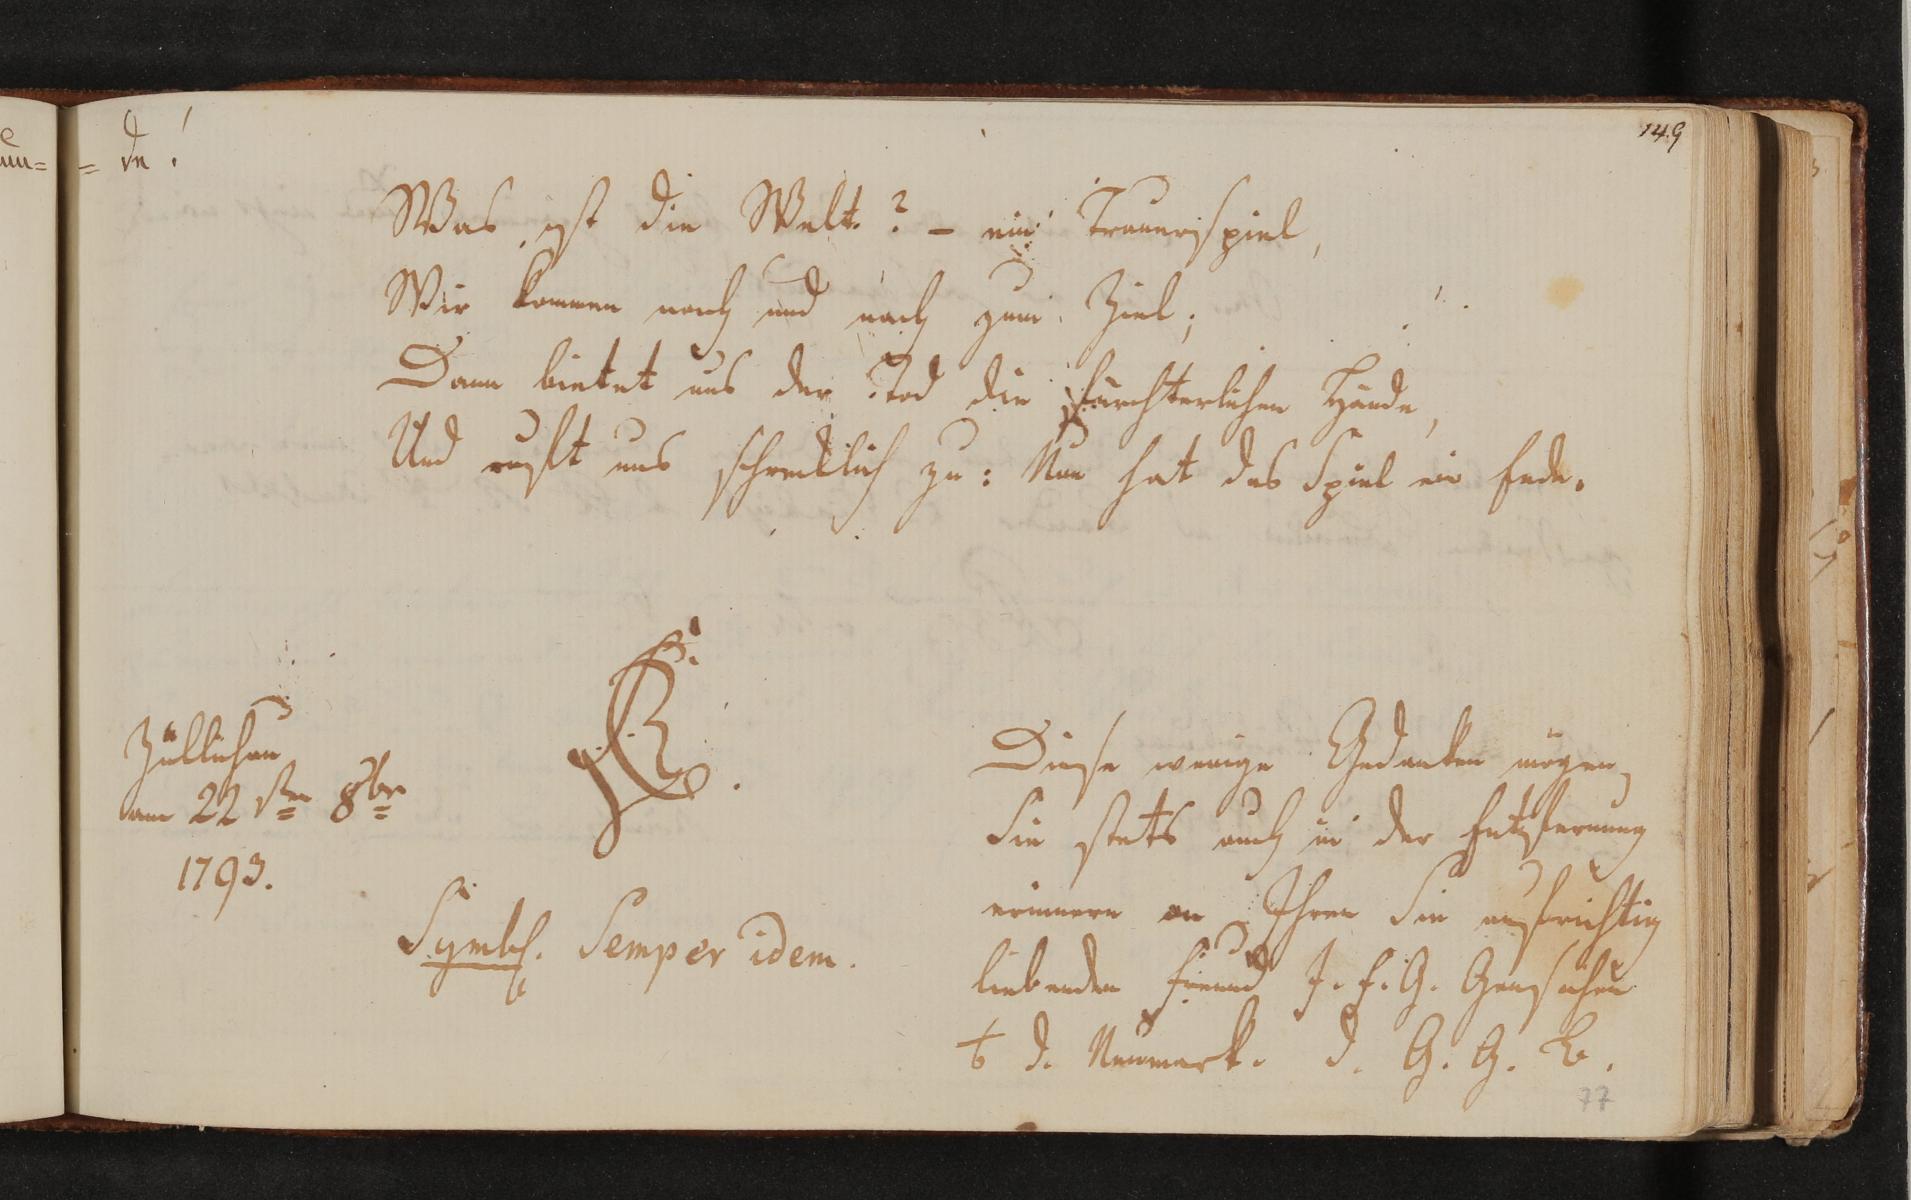 149
= de!
Was ist die Welt? – ein Trauerspiel,
Wir kommen nach und nach zum Ziel;
Dann bietet uns der Tod die fürchterlichen Hände,
Und ruft uns schrecklich zu: Nun hat das Spiel ein Ende.
Züllichau
am 22 sten 8br
1793.
Symb. Semper idem.
Diese wenige Gedanken mögen
Sie stets auch in der Entfernung
erinnern an Ihren Sie aufrichtig
liebenden Freund J. F. G.
d. Neumark. d. G. G. B.
77